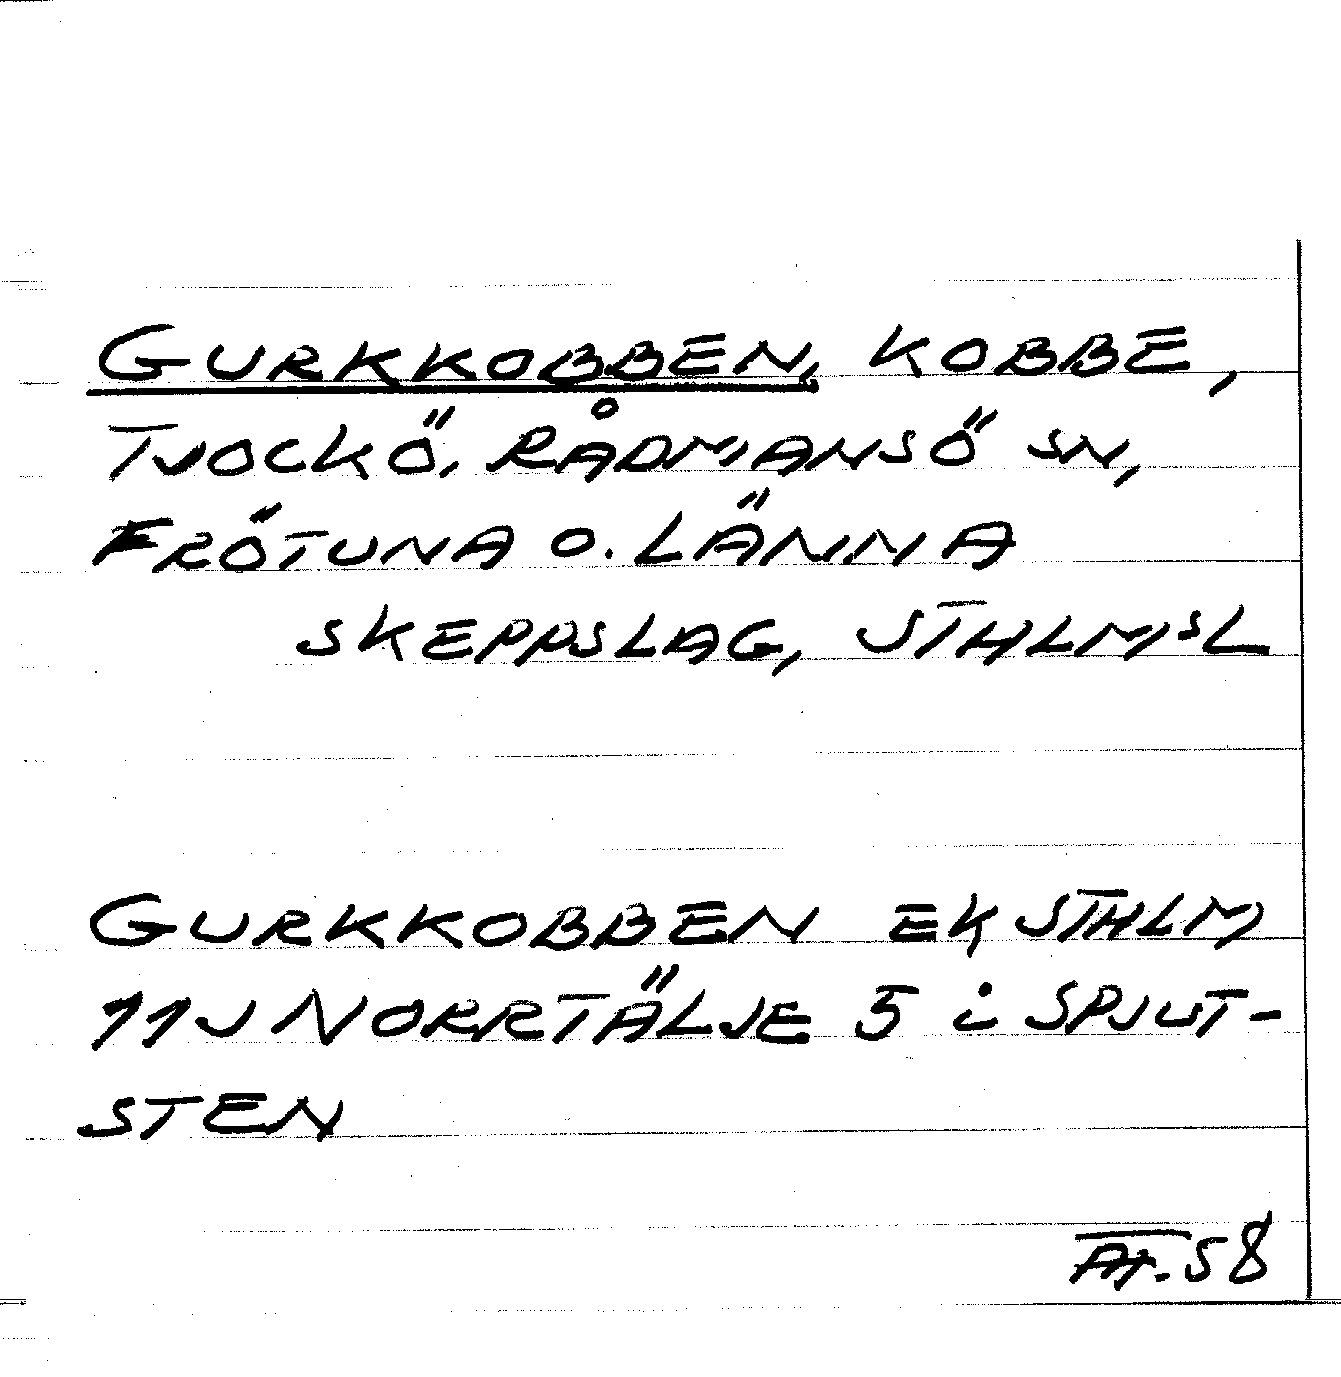 GURKKOBBEN, KOBBE,
TJOCKÖ, RÅDMANSÖ SN,
FRÖTUNA O. LÄNNA
SKEPPSLAG, STHLMSL
GURKKOBBEN EK STHLM
11J NORRTÄLJE 5 i SPJUT-
STEN
58